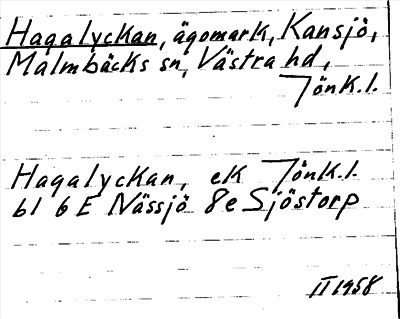 Hagalyckan, ägomark, Kansjö,
Malmbäcks sn, Västra hd,
Jönk.l.
Hagalyckan, ek Jönk.l.
bl 6E Nässjö 8e Sjöstorp
II 1958